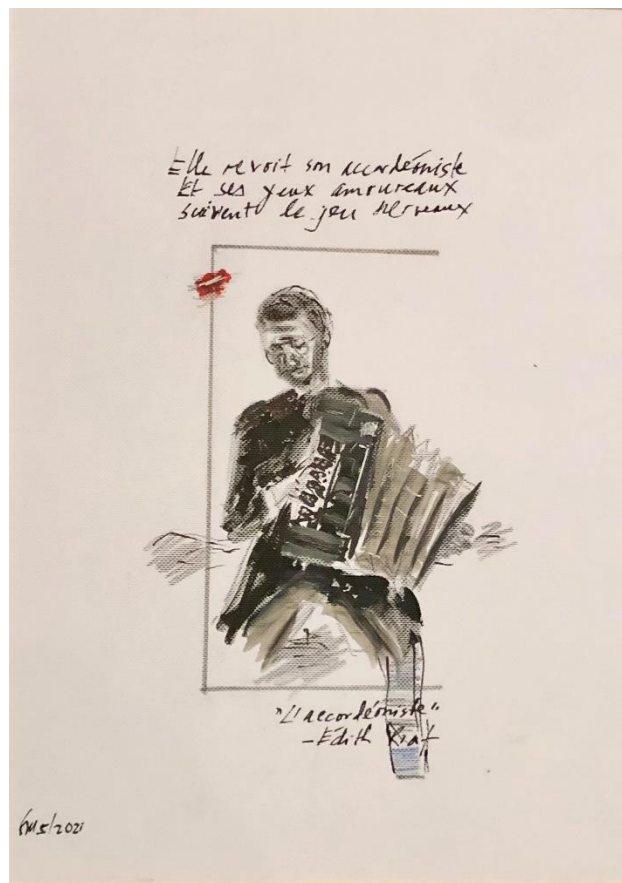 Elle revoit son accordéoniste
Et ses yeux amoureaux
suivent le jeu nerveaux
"L'accordéoniste"
- Edith Piaf
5/2021